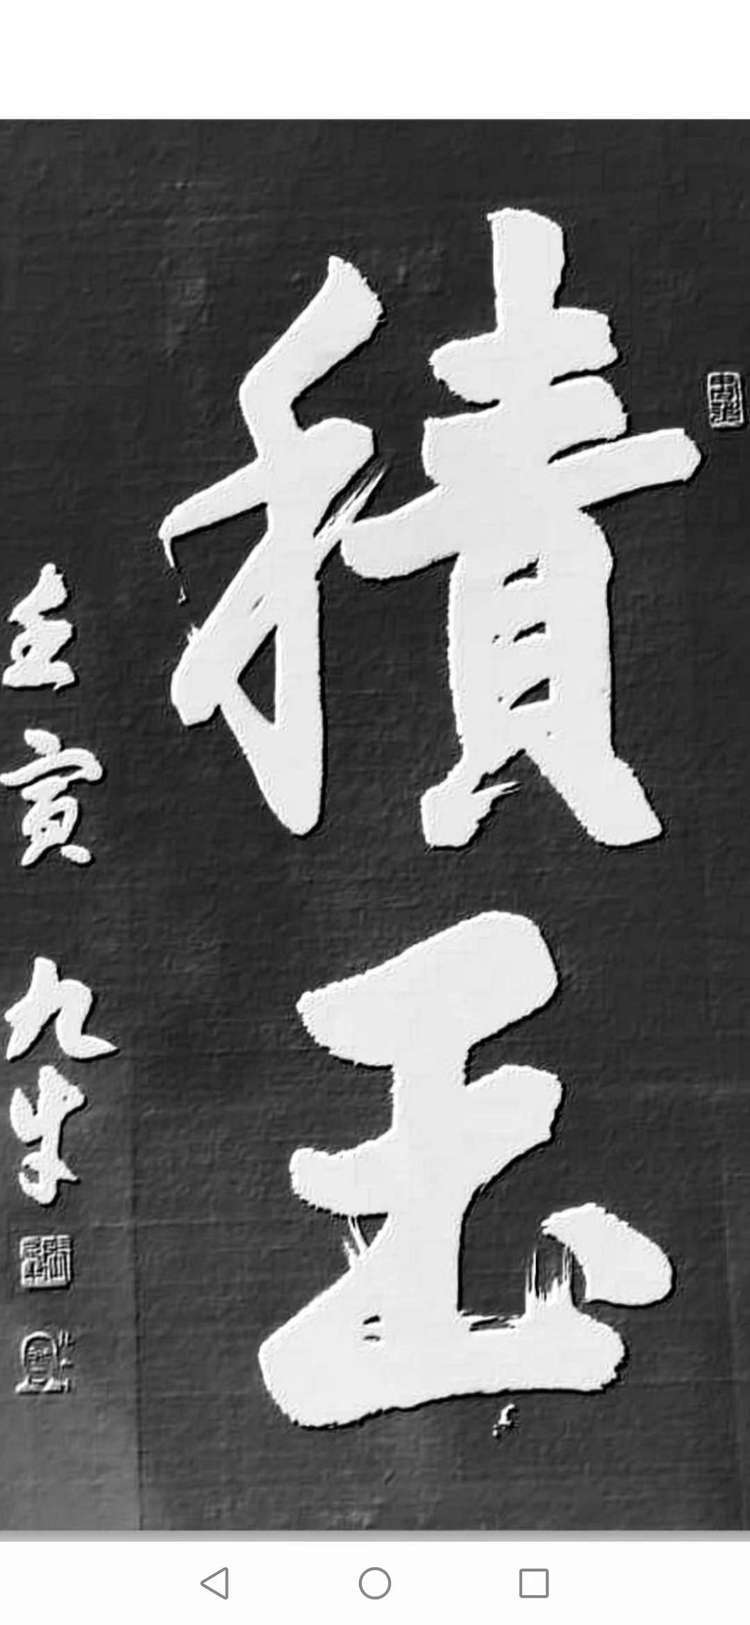 積玉
壬寅
九牛